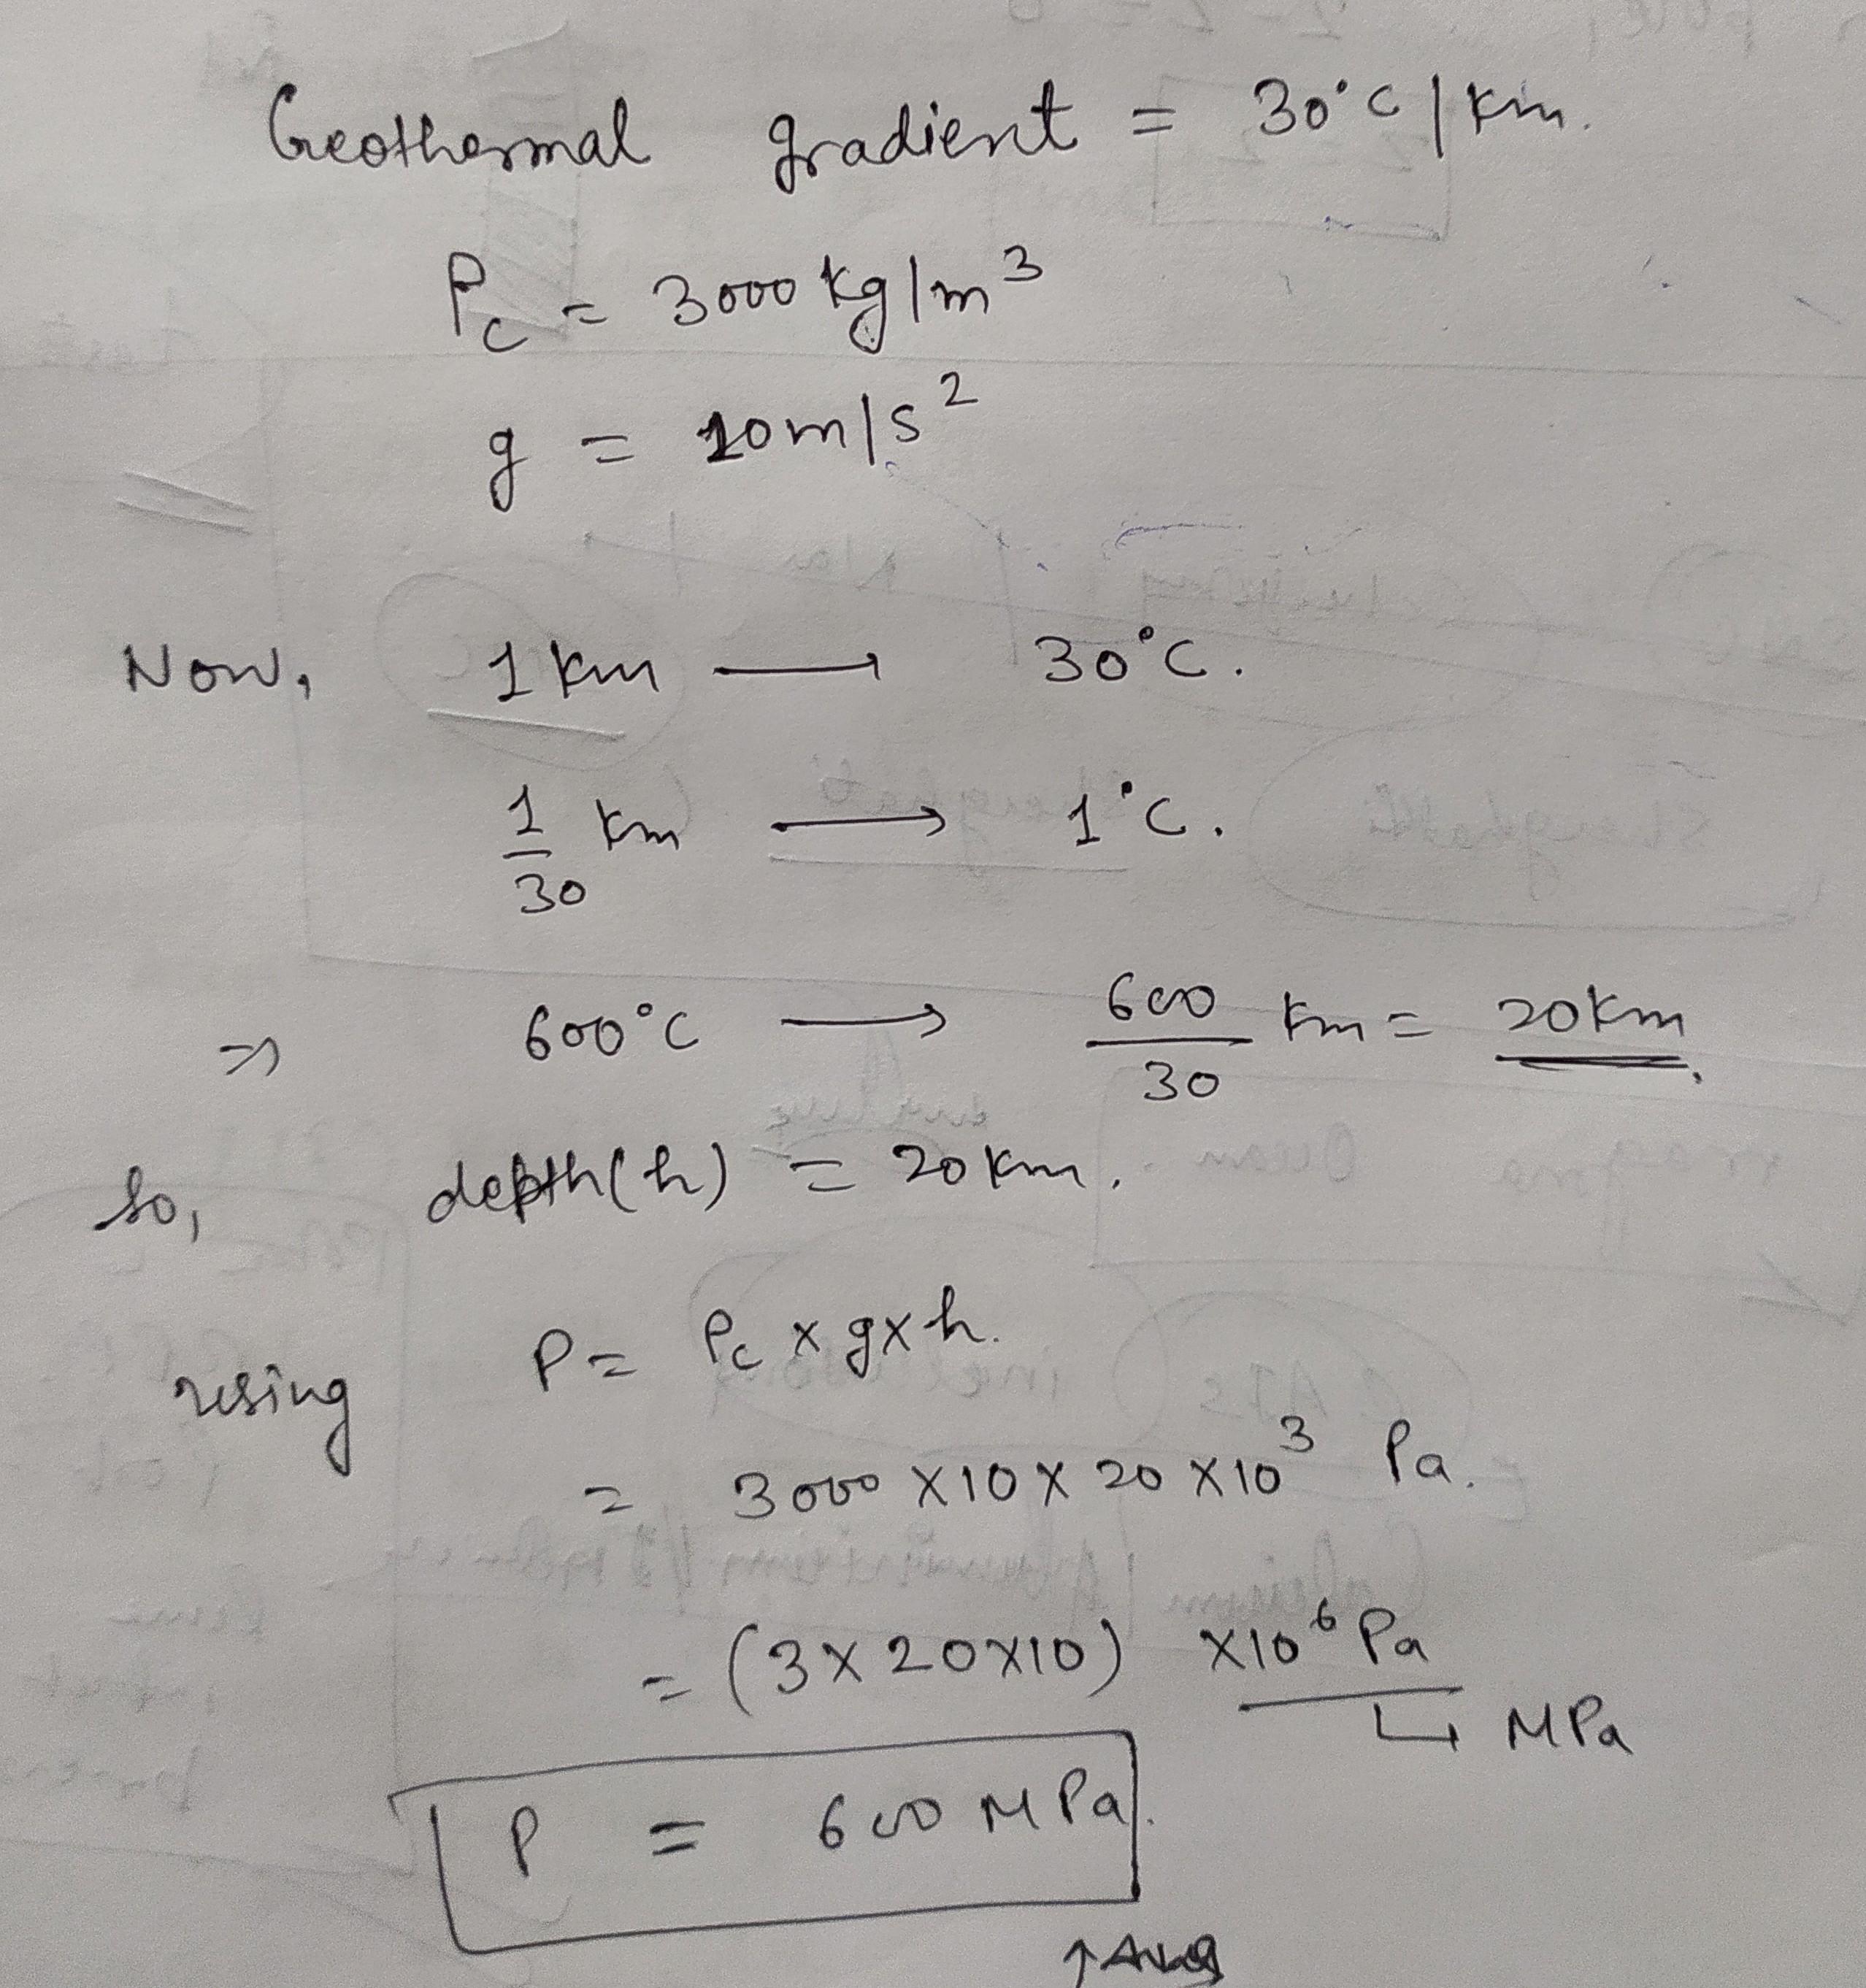 Geothermal gradient = 30°C/km.
ρc = 3000 kg/m³
g = 10m/s²
Now, 1 km → 30°C.
1/30 km → 1°C.
⇒ 600°C → 600/30 km = 20km.
So, depth(h) = 20 km.
using P = ρc × g × h.
= 3000 × 10 × 20 × 10³ Pa.
= (3 × 20 × 10) × 10⁶ Pa
↳ MPa
P = 600 MPa.